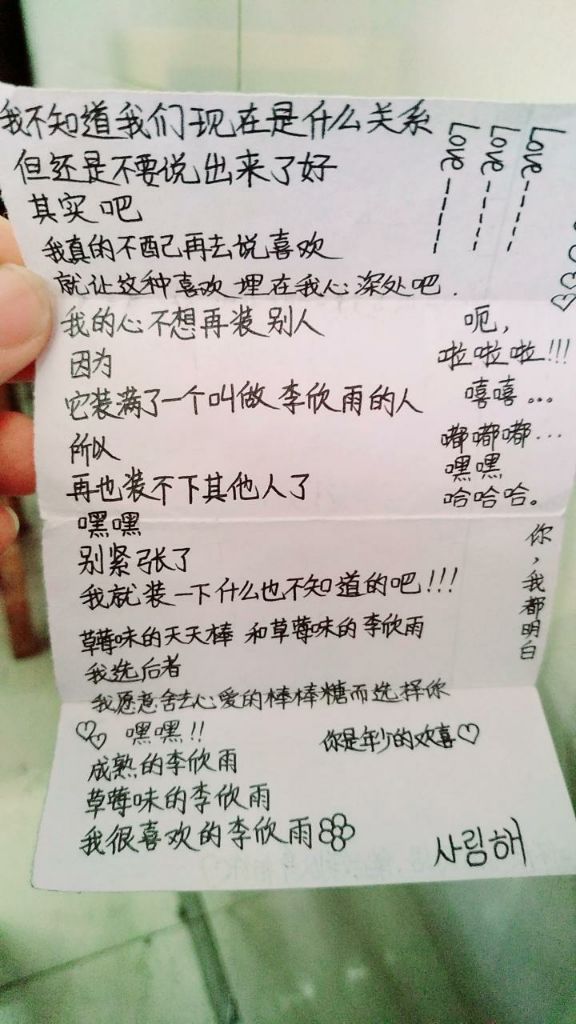 我不知道我们现在是什么关系
但还是不要说出来了好
其实吧
我真的不配再去说喜欢
就让这种喜欢埋在我心深处吧.
Love-----
Love-----
Love-----
我的心不想再装别人
因为
它装满了一个叫做李欣雨的人
所以
再也装不下其他人了
嘿嘿
别紧张了
我就装一下什么也不知道的吧!!!
呃,
啦啦啦!!!
嘻嘻...
嘟嘟嘟...
嘿嘿
哈哈哈。
你,我都明白
草莓味的天天棒 和草莓味的李欣雨
我选后者
我愿意舍去心爱的棒棒糖而选择你
♡♡ 嘿嘿!!
你是年少的欢喜♡
成熟的李欣雨
草莓味的李欣雨
我很喜欢的李欣雨
사림해